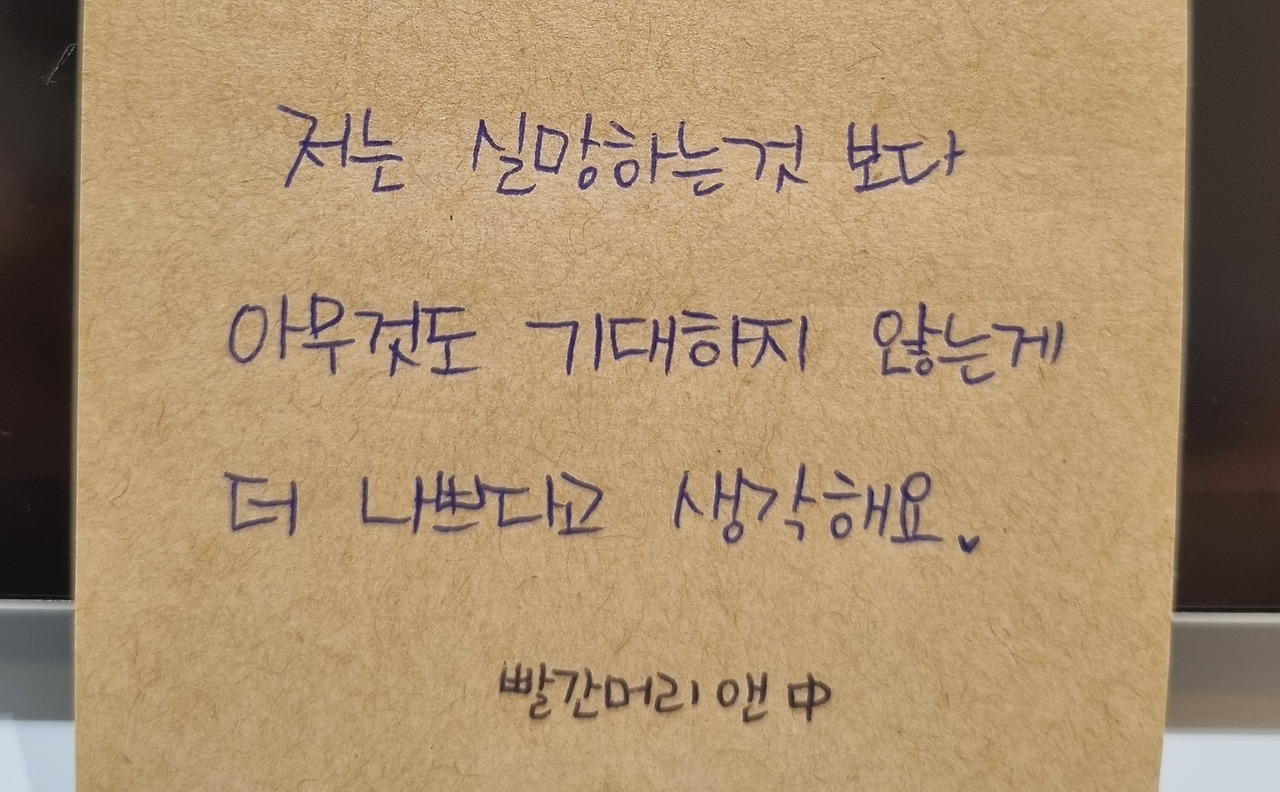 저는 실망하는것 보다
아무것도 기대하지 않는게
더 나쁘다고 생각해요.
빨간머리 앤 中